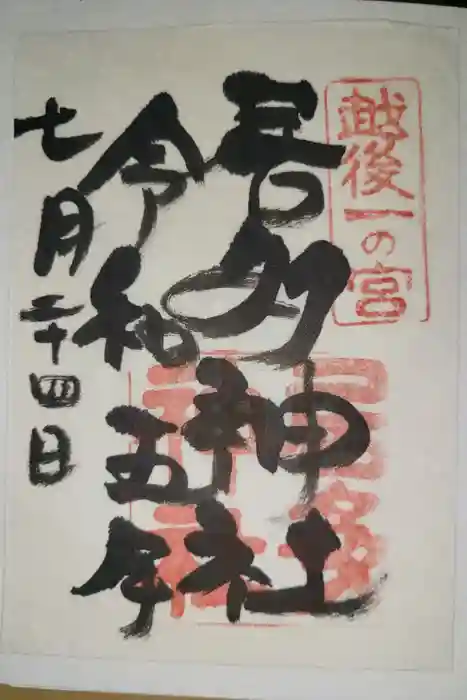 越後一の宮
居多神社
令和五年
七月二十四日
居多
神社